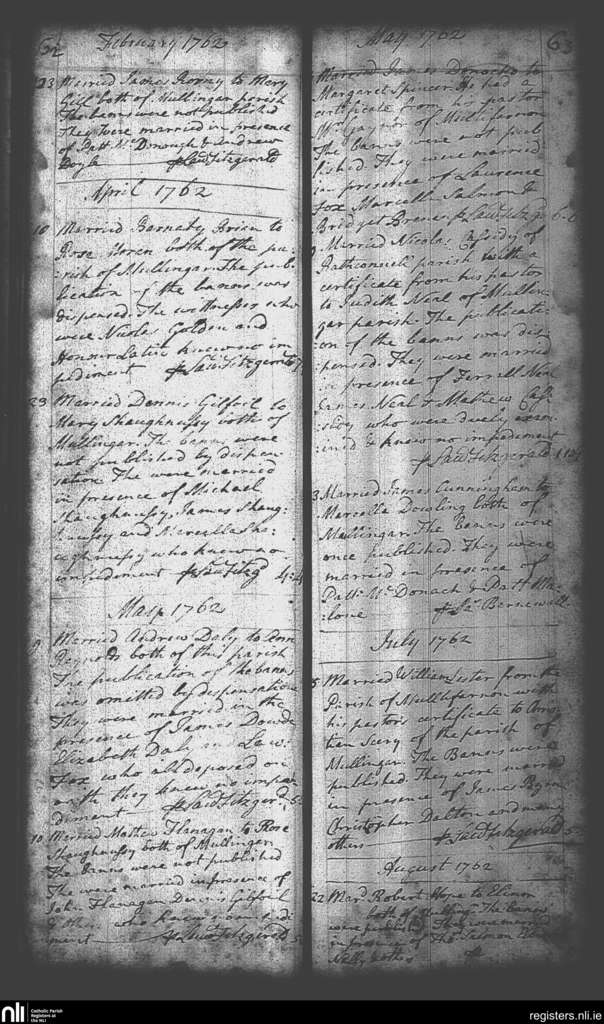 62
February 1762
23 Married James Rorny to Mary
Gill both of Mullingar parish
The banns were not published
They were married in presence
of Patt McDonough & Andrew
Boyle fr Lawr Fitzgerald
April 1762
10 Married Barnaby Brien to
Rose Horen both of the pa-
rish of Mullingar. The pub-
lication of the banns was
dispensed. The witnesses who
were Nicolas Golden and
Honour know no im
pediment fr Lawr Fitzgerald
23 Married Dennis Gilfoil to
Mary Shaughnussy both of
Mullingar. The banns were
not published by dispen
sation The were married
in presence of Michael
Shaughnussy, James Shaug-
nussy and Marcella Sha-
ughnussy who know no
impediment fr Lawr Fitzg 4:4
May 1762
9 Married Andrew Daly to
Reynolds both of this parish
The publication of the banns
was omitted by dispensation
They were married in the
presence of James Dowde
Elizabeth Daly and Law:
Fox who all deposed on
oath they knew no impe
diment fr Lawr Fitzgerd 5
10 Married Mathew Flanagan to Rose
Shaughnussy both of Mullingar
The banns were not published
The were married in presence of
John Flanagan Dennis Gilfoil
& who know no impedi-
ment fr Lawr Fitzgerald 5
63
May 1762
Married James Donacho to
Margaret Spincer He had a
certificate from his pastor
Mr Gaynor of Multifernon
The banns were not pub
lished. They were married
in presence of Laurence
Fox Marcella Salmon &
Bridget fr Lawr Fitzgd 6-6
Married Nicolas Cassidy of
Rathconnell parish with a
certificate from his pastor
to Judith Neal of Mullin-
gar parish. The publicati-
on of the banns was dis-
pensed. They were married
in presence of Ferrell Neal
James Neal & Mathew Cass-
idy who were duely exam-
in'd & know no impediment
fr Lawr Fitzgerald
3 Married James Cunningham to
Marcella Dowling both of
Mullingar. The banns were
once published. They were
married in presence of
Patt: McDonach & Patt Ma-
lone fr Ja: Bernewall
July 1762
Married William Lester from the
Parish of Multifernon with
his pastor's certificate to Chris
tian Seery of the parish of
Mullingar. The Banns were
published. They were married
in presence of James Byrn
Christopher Dalton and many
others fr Lawr Fitzgerald 5
August 1762
22 Mard Robert Hope to Elinor
both of Mulling: The banns
were publishd They were married
in presence of Thos
Nelly & others fr
nli Catholic Parish
Registers at
the NLI
registers.nli.ie